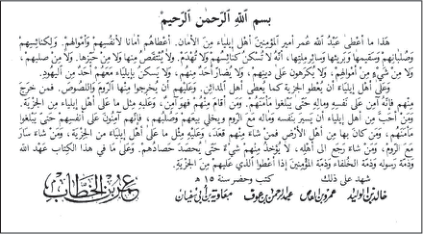 بسم ٱللَّهِ ٱلرَّحمٰنِ ٱلرَّحِيمِ
هَذا ما أَعْطَى عَبْدُ اللَّهِ عُمر أمير المؤمِنينَ أَهْل إيلياءَ مِنَ الأمَان. أعْطاهُم أمَانًا لأنفُسِهِمْ وأَمْوالِهِمْ. ولِكَنائِسِهِمْ
وصُلبَانِهِمْ وسَقيمِها وبَرِيئِها وسائِرِ مِلَّتِها، أنَّهُ لا تُسْكَنُ كَنائِسُهُمْ ولا تُهْدَم. ولا يُنْتَقَصُ مِنْها ولا مِن حَيِّزِها. ولا مِن صَليبِهم،
ولا مِن شيءٍ مِن أمْوَالِهِمْ، ولا يُكْرَهُونَ عَلى دينِهِمْ، ولا يُضَارَّ أحَدٌ مِنهُم، ولا يَسْكُنَ بإيلْيَاءَ مَعَهُم أَحدٌ مِن اليَهُود.
وعَلَى أَهْلِ إيلْيَاءَ أن يُعْطُوا الجزية كما يعطي أهل المدائن. وعَلَيْهِم أن يُخْرِجوا منها ٱلرومَ وٱللصُوصَ. فمن خَرجَ
مِنهم فإنَّه آمِنٌ عَلى نَفْسِهِ ومالِهِ حَتَّى يَبلُغوا مَأمَنَهُم. ومَن أقامَ مِنْهم فَهو آمِنٌ، وعَلَيهِ مِثل ما عَلَى أَهْلِ إيلياء مِن الجِزْيَة.
ومَنْ أحَبَّ مِن أَهل إيلياء أن يَسيرَ بنَفسِه ومالِه مَعَ الروم ويخلي بِيَعَهُم وصُلُبَهُم، فإنَّهم آمِنُونَ على أنفُسِهِم حتَّى يَبْلُغُوا
مَأمَنَهُم، ومَن كانَ بها مِن أَهْلِ الأَرْض فمن شاءَ مِنهم قَعَدَ، وعَلَيْهِ مِثْل ما عَلَى أَهْلِ إيلياء من الجزية، ومَنْ شاءَ سارَ
مَعَ الرومِ، ومَن شاءَ رجَع إلى أَهْلِهِ، لا يُؤخَذ مِنْهم شيء حتَّى يُحصَدَ حَصَادُهُم. وعَلَى ما في هذا الكِتاب عَهْد الله
وَذِمَّة رَسولِه وذِمَّة الخُلَفاءِ وذِمَّة المُؤمِنينَ إذا أَعْطَوا الَّذِي عَلَيهم مِنَ الجِزْيَة.
شهد على ذلك كتب وحضر سنة ١٥ هـ
خالد بن الوليد عمرو بن العاص عبد الرحمن بن عوف معاوية بن أبي سفيان عمر بن الخطاب